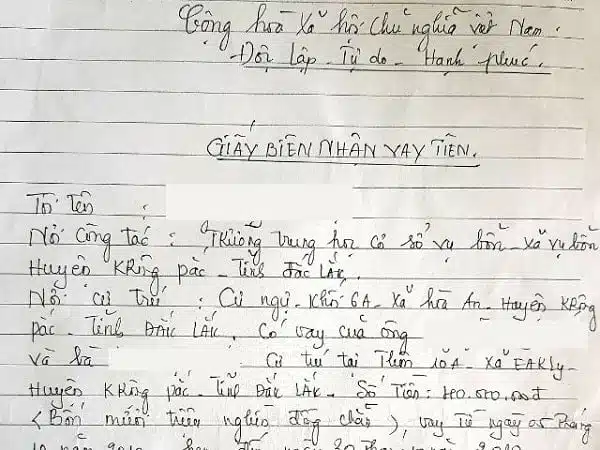 Cộng hoà Xã hội Chủ nghĩa Việt Nam.
Độc lập - Tự do - Hạnh phúc.
GIẤY BIÊN NHẬN VAY TIỀN.
Tôi tên :
Nơi Công tác : Trường trung học cơ sở vụ bổn - xã vụ bổn
Huyện KRông pắc - Tỉnh Đắc LắK.
Nơi cư trú : Cư ngụ - Khối 6A - Xã hoà An - Huyện KRông
pắc - Tỉnh ĐắK LắK. Có vay của ông
và bà Cư trú tại Thôn 10A - Xã EAKly -
Huyện KRông pắc - Tỉnh ĐắK LắK - Số Tiền : 40.000.000đ
(Bốn mươi triệu nghìn đồng chẵn), vay Từ ngày 05 tháng
năm ngày 30